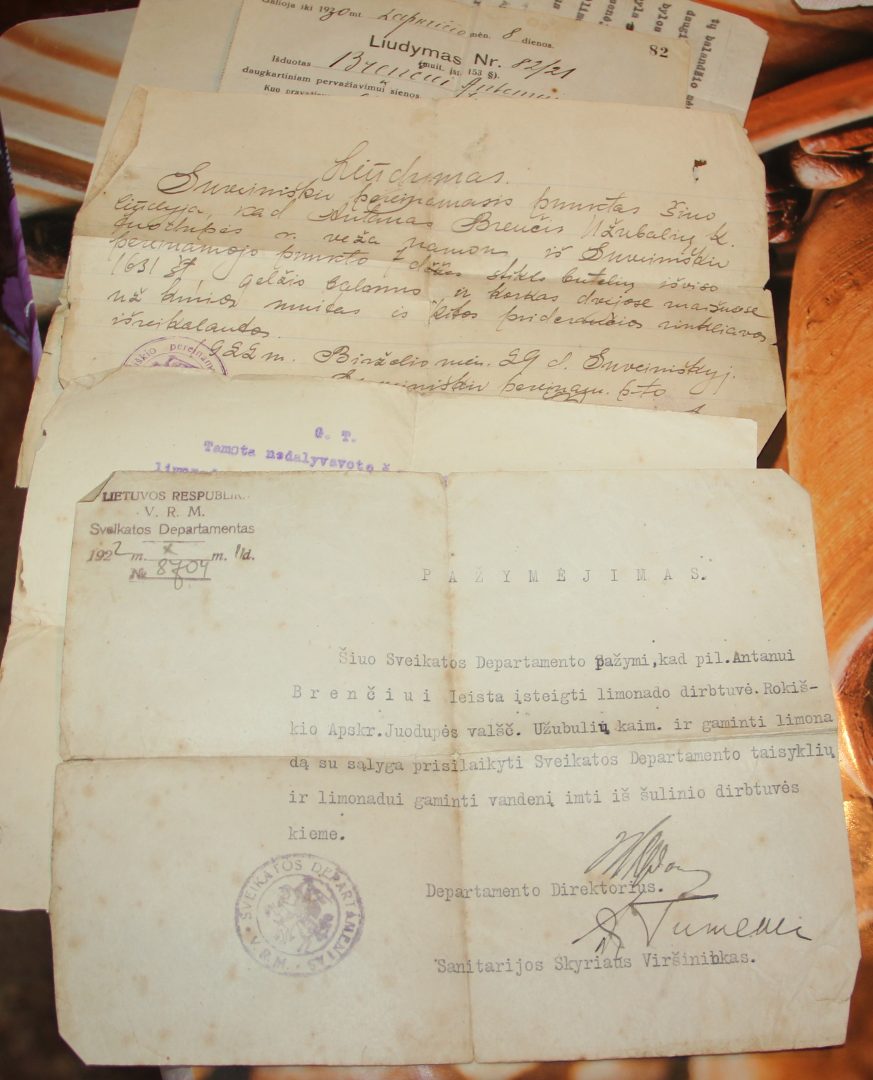 Galioja iki 1930 mt. Lapkričio mėn. 8 dienos.
82
Liudymas Nr. 82/21
(muit. įst. 153 §).
Išduotas Brenčiui Antanui
daugkartiniam pervažiavimui sienos.
Kuo
tų balandžio
daugi
bylos
byla
Liūdymas.
Suveiniškiu pereinamasis punktas šiuo
liūdyja, kad Antanas Brenčis Užubalių k.
Juodupės v. veža namon iš Suveiniškiu
perinamojo punkto 7 stiklo butelių išviso
1631 št. geležio ir korkas dvejose mašinose
už kurios muitas ir kitos priderančios rinkliavos
išreikalautos.
922 m. Birželio mėn. 29 d. Suveiniškyj.
Suveiniškiu pereinam. p-to
G. T.
Tamota nedalyvavote
limonad
LIETUVOS RESPUBLIK.
V. R. M.
Sveikatos Departamentas
1922 m. X m. 11 d.
№ 8704
PAŽYMĖJIMAS.
Šiuo Sveikatos Departamento pažymi,kad pil.Antanui
Brenčiui leista įsteigti limonado dirbtuvė.Rokiš-
kio Apskr.Juodupės valšč. Užubulių kaim. ir gaminti limona
dą su sąlyga prisilaikyti Sveikatos Departamento taisyklių
ir limonadui gaminti vandenį imti iš šulinio dirbtuvės
kieme.
Departamento Direktorius.
Sanitarijos Skyriaus Viršininkas.
SVEIKATOS DEPARTAMENTAS
V.R.M.